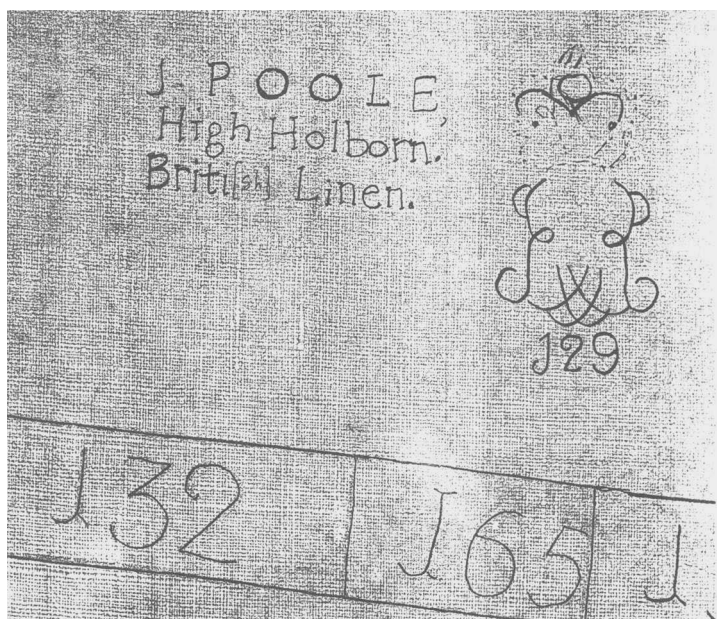 J. POOLE,
High Holborn.
Briti[sh] Linen.
J29
J32
J65
J